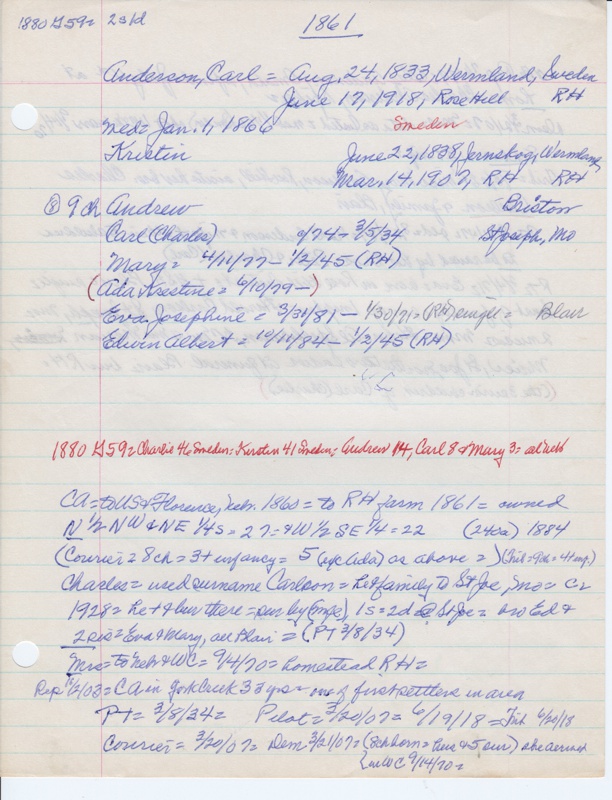 1880 G59= 2s/d
1861
Anderson, Carl = Aug. 24, 1833, Wermland, Sweden
June 17, 1918, Rose Hill RH
med= Jan. 1, 1866 Sweden
Kristin June 22, 1838, Jernskog, Wermland
Mar. 14, 1907, RH RH
9 ch Andrew Briston
Carl (Charles) 9/74 - 3/5/34 St Joseph, Mo
Mary = 4/11/77 - 1/2/45 (RH)
(Ada Krestine = 6/10/79 - )
Eva Josephine = 3/31/81 - 1/30/71 = (RH) single = Blair
Edwin Albert = 10/11/84 - 1/2/45 (RH)
1880 G59= Charlie 46 Sweden; Kersten 41 Sweden; Andrew 14, Carl 8 & Mary 3 = all Neb
CA = to US & Florence, Nebr. 1860 = to RH farm 1861 = owned
N 1/2 NW & NE 1/4 S = 27 = & W 1/2 SE 1/4 = 22 (240a) 1884
(Courier = 8 ch = 3 + infancy = 5 (exc Ada) as above = ) (Trib = 9ch = 4 + inf.)
Charles = used surname Carlson = he & family to St Joe, Mo = c2
1928 = he + & bur there = sur by (mrs) 1s = 2d @ St Joe = bro Ed &
2 sis = Eva & Mary, all Blair = (PT 3/8/34)
Mrs = to Nebr & WC = 9/4/70 = homestead RH =
Rep 11/2/03 = CA in York Creek 33 yrs = one of first settlers in area
PT = 3/8/34 = Pilot = 3/20/07 = 6/19/18 = Trib 6/20/18
Courier = 3/20/07 = Dem 3/21/07 = (8ch born = hus & 5 sur)
in WC 9/14/70 =